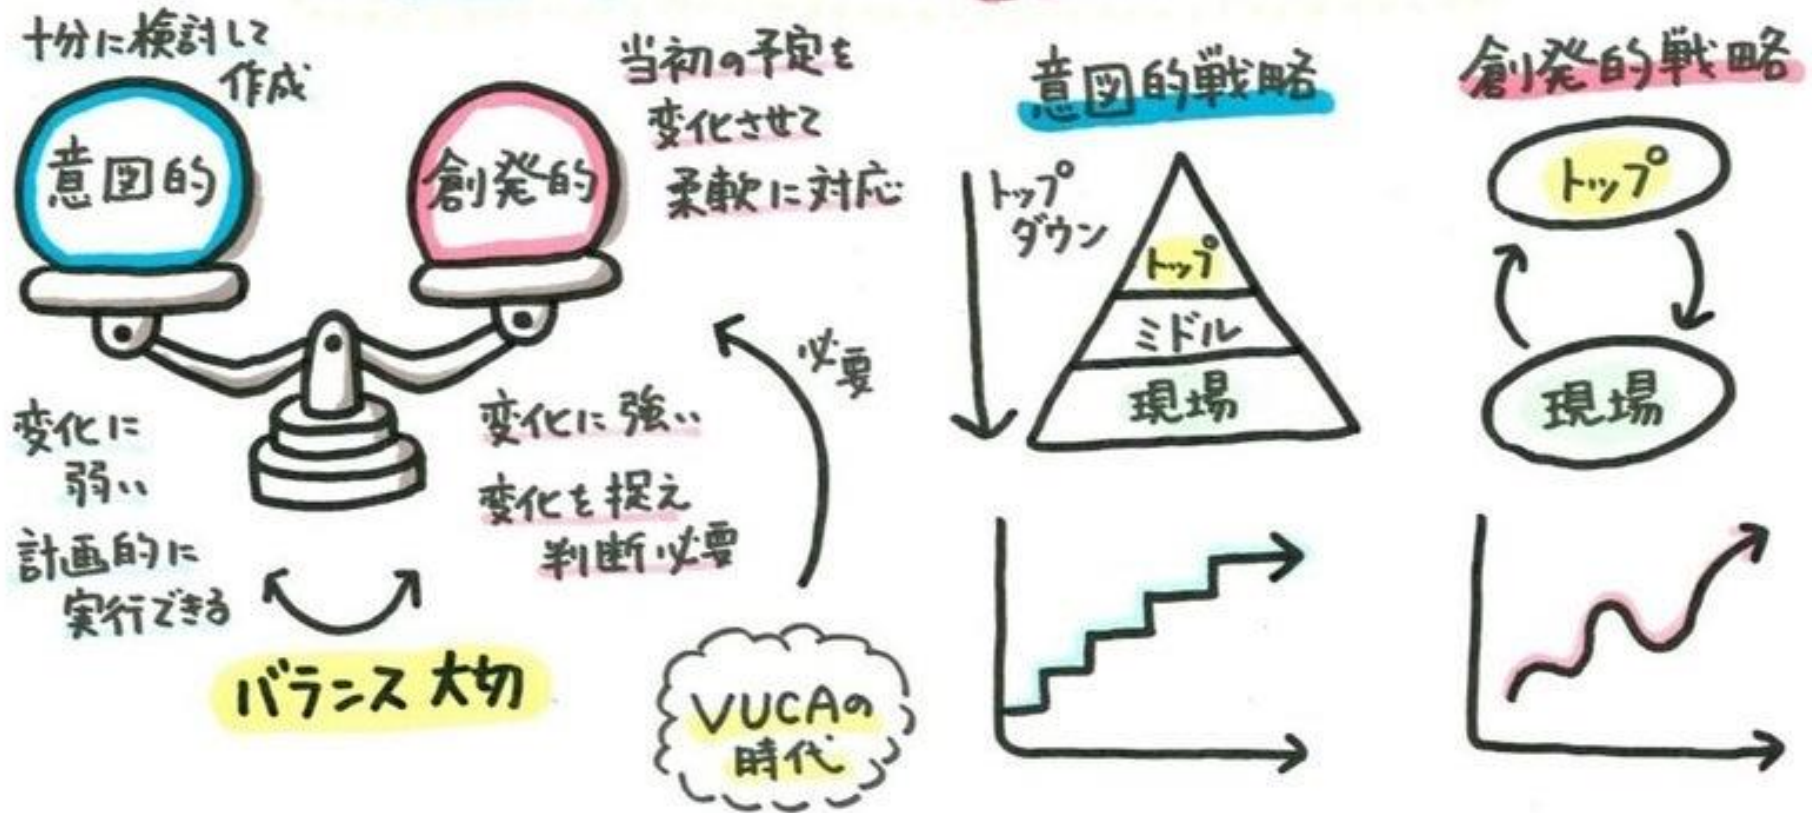 十分に検討して
作成
意図的
創発的
当初の予定を
変化させて
柔軟に対応
変化に
弱い
計画的に
実行できる
変化に強い
変化を捉え
判断必要
バランス大切
必要
VUCAの
時代
意図的戦略
トップ
ダウン
トップ
ミドル
現場
創発的戦略
トップ
現場